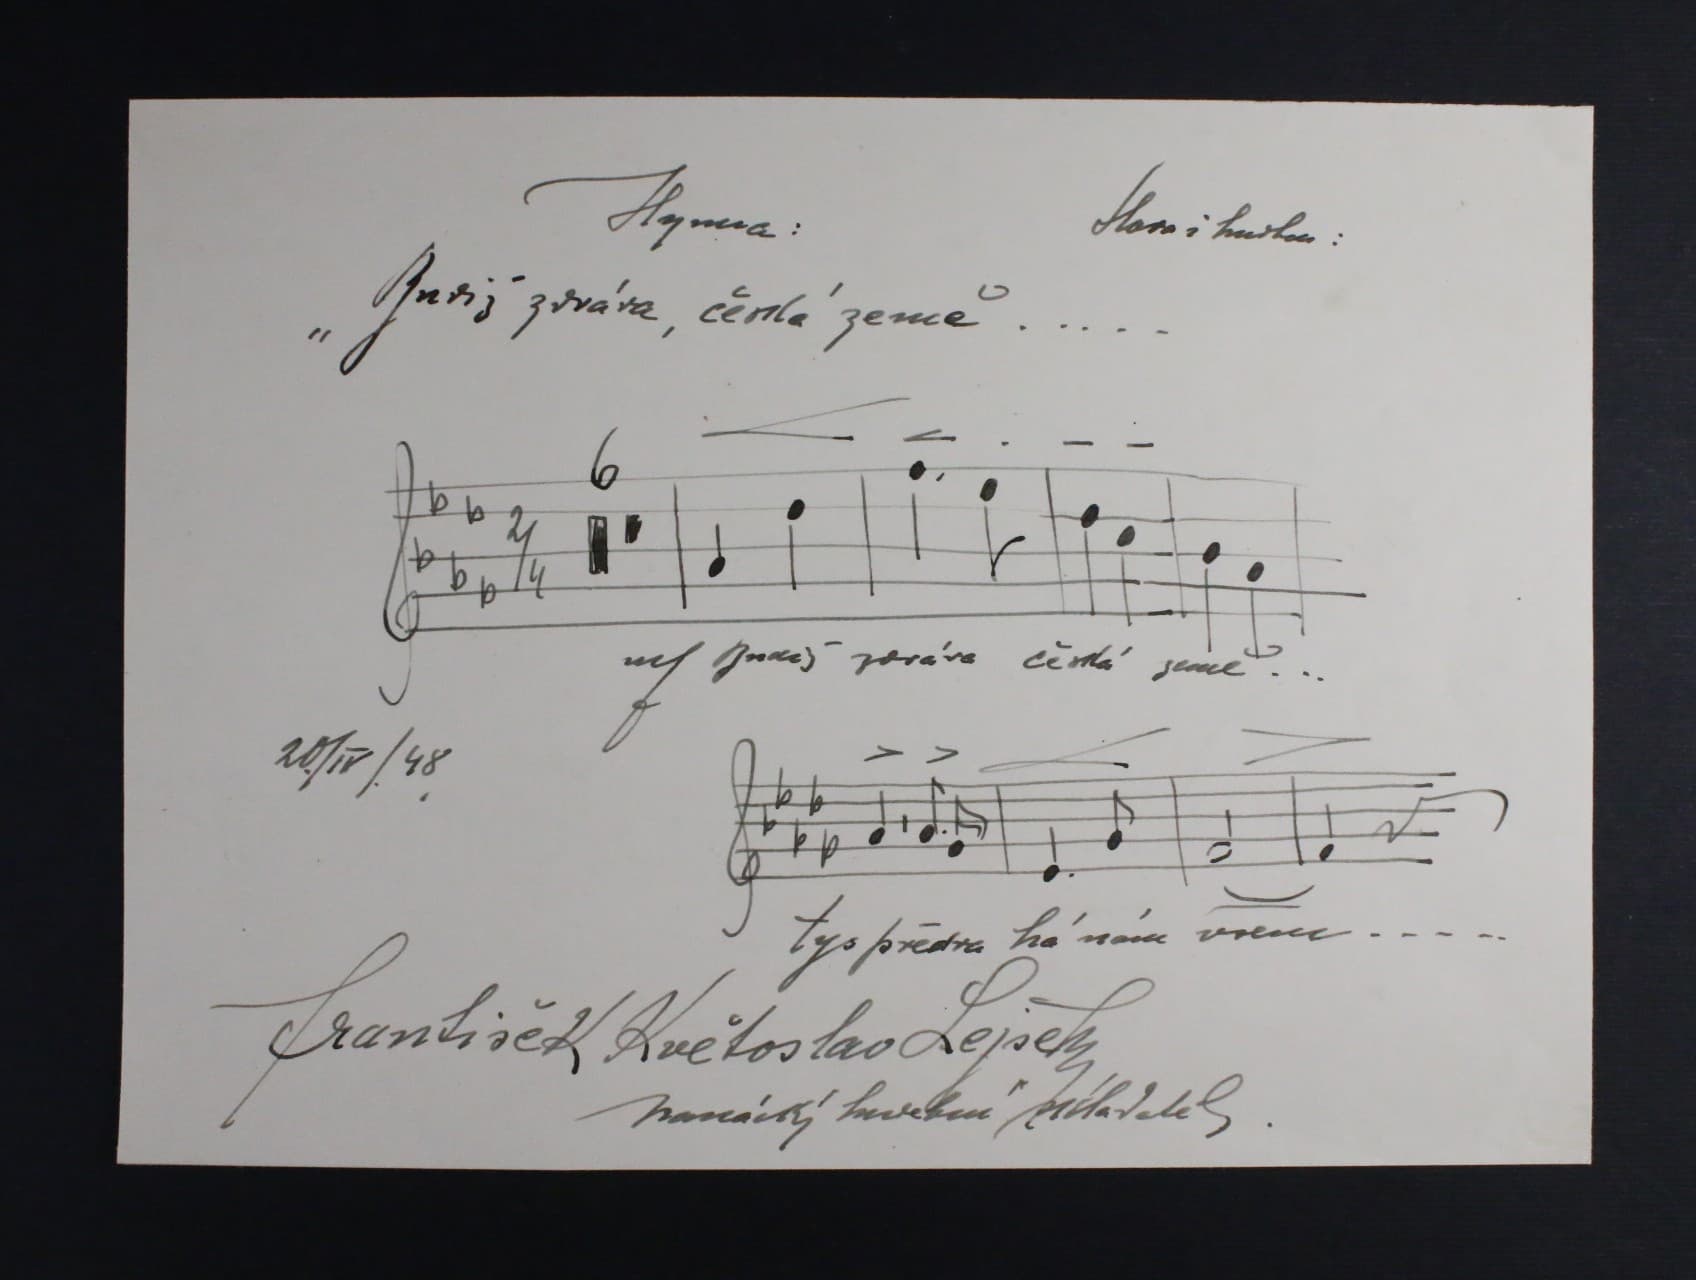 Hymna:
Slova i hudbu:
„Budiž zdráva, česká země" .....
6
2/4
mf Budiž zdráva česká země ...
20/IV/48.
tys předra há nám všem -----
František Květoslav Lejsek
hanácký hudební skladatel.